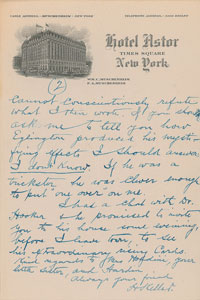 CABLE ADDRESS, MUSCHENHEIM - NEW YORK
TELEPHONE
Hotel Astor
TIMES SQUARE
New York
WM. C. MUSCHENHEIM
F. A. MUSCHENHEIM
(2)
Cannot conscientiously refute
what I then wrote. If you should
ask me to tell you how
Eglington produced his mysti-
fying effects I should answer
I don't know. If he was a
trickster he was clever enough
to put "one over on me.
I had a chat with Dr.
Hooker & he promised to invite
you to his house some evening,
before I leave town, to see
his extraordinary rising Cards.
Kind regards to Mrs Houdini, your
both sister, and Hardeen
Always your friend
H Kellar